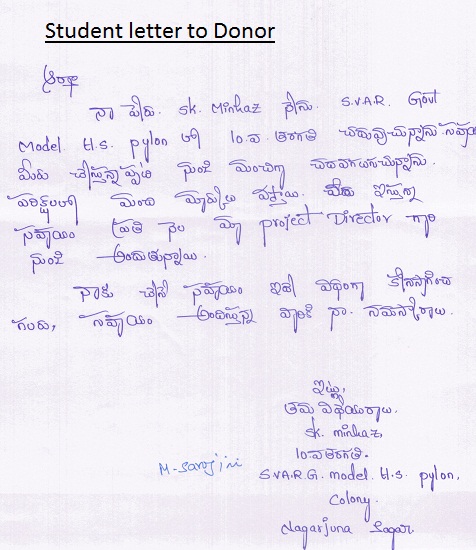 Student letter to Donor
ఆర్యా
నా పేరు. SK. Minhaz నేను. S.V.A.R. Govt
Model. H.S. pylon లో 10.వ తరగతి చదువుచున్నాను. సహాయం
మీరు చేస్తున్నప్పటి నుండి మంచిగా చదవగలుగుచున్నాను.
పరీక్షలలో మంచి మార్కులు వస్తాయి. మీరు ఇస్తున్న
సహాయం ప్రతి నెల మా project Director గారి
నుండి అందుతున్నాయి.
నాకు చేసే సహాయం ఇదే విధంగా కొనసాగించ
గలరు, సహాయం అందిస్తున్న వారికి నా. నమస్కారాలు.
ఇట్లు,
తమ విధేయురాలు.
SK. minhaz,
10.వ తరగతి.
S.V.A.R.G. model. H.S. pylon,
Colony.
Nagarjuna Sagar.
M-Sarojini